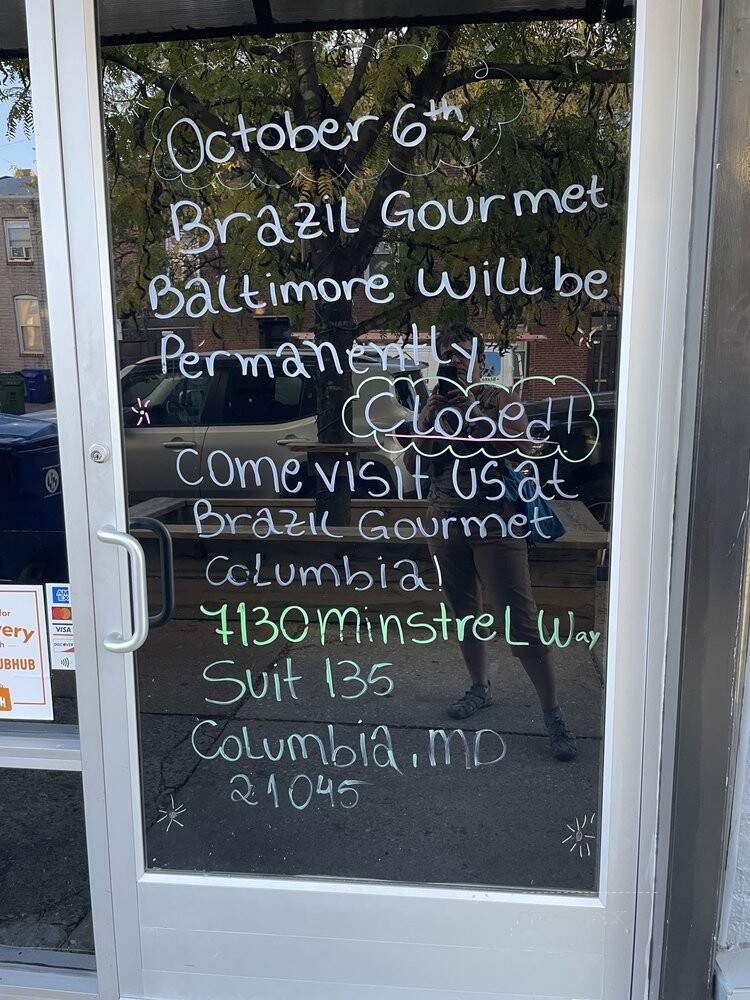 October 6th,
Brazil Gourmet
Baltimore will be
Permanently
Closed!!
Come visit us at
Brazil Gourmet
Columbia!
7130 Minstrel Way
Suit 135
Columbia, MD
21045
for
ery
UBHUB
VISA
DISCOVER